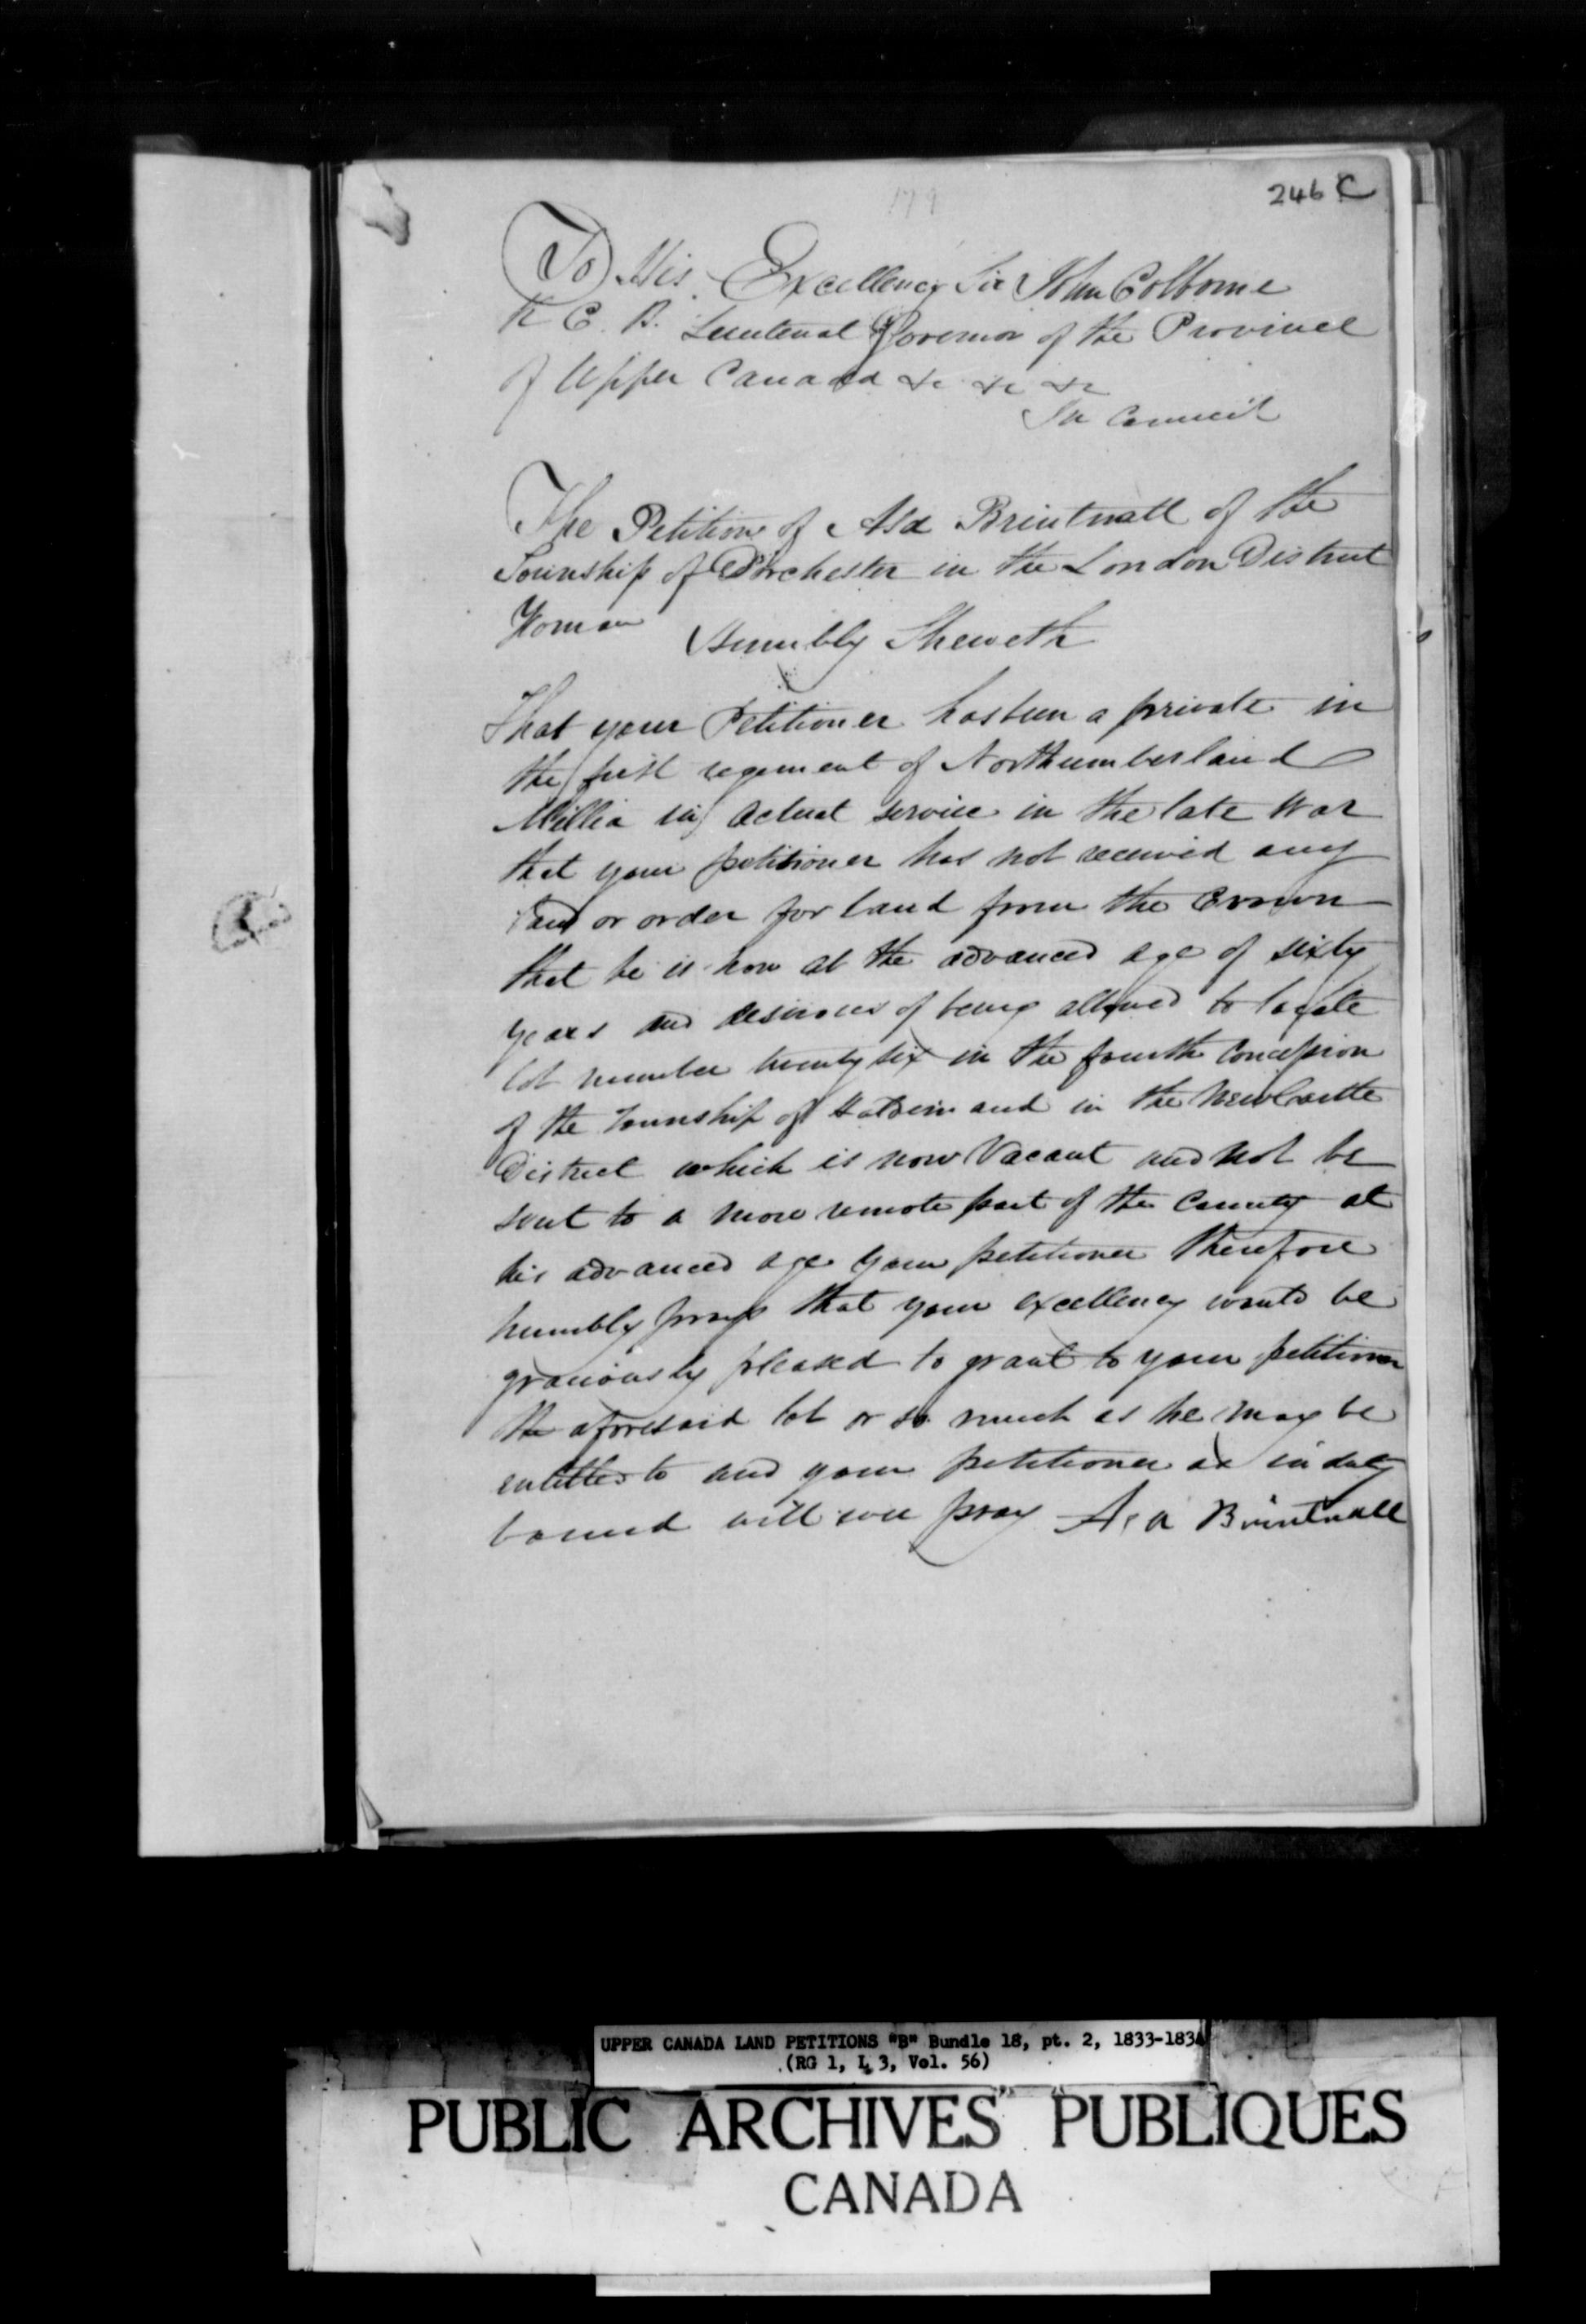 246 C
179
To His Excellency Sir John Colborne
K C. B. Lieutenat Governor of the Province
of Upper Canada &c &c &c
In Council
The Petition of Asa Brintnall of the
Township of Dorchester in the London District
Yoman Humbly Sheweth
That your Petitioner has been a private in
the first regement of Northumberland
Millia in actual service in the late War
that your petitioner has not received any
land or order for land from the Crown
that he is now at the advanced age of sixty
years and desirous of being allowed to locate
lot number twenty six in the fourth Concession
of the Township of Haldimand in the NewCastle
District which is now Vacant and not be
sent to a more remote part of the County at
his advanced age your petitioner therefore
humbly prays that your excellency would be
graciously pleased to grant to your petitioner
the aforesaid lot or so much as he may be
entitled to and your petitioner as in duty
bound will ever pray Asa Brintnall
UPPER CANADA LAND PETITIONS "B" Bundle 18, pt. 2, 1833-1834
(RG 1, L 3, Vol. 56)
PUBLIC ARCHIVES PUBLIQUES
CANADA